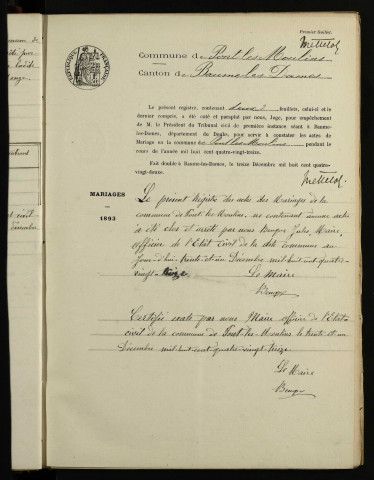 Premier feuillet.
Commune de Pont-les-Moulins
Canton de Baume-les-Dames
RÉPUBLIQUE FRANÇAISE
Le présent registre, contenant deux feuillets, celui-ci et le
dernier compris, a été coté et paraphé par nous, Juge, pour empêchement
de M. le Président du Tribunal civil de première instance séant à Baume-
les-Dames, département du Doubs, pour servir à constater les actes de
Mariage en la commune de Pont-les-Moulins pendant le
cours de l'année mil huit cent quatre-vingt-treize.
Fait double à Baume-les-Dames, le treize Décembre mil huit cent quatre-
vingt-douze.
MARIAGES
1893
Le présent Registre des actes des Mariages de la
commune de Pont-les-Moulins, ne contenant aucun acte
a été clos et arrêté par nous Jules, Maire,
officier de l'Etat civil de la dite commune au
jour d'hui trente et un Décembre mil huit cent quatre-
vingt-treize
Le Maire
Certifié exact par nous Maire officier de l'Etat
civil de la commune de Pont-les-Moulins le trente et un
Décembre mil huit cent quatre-vingt treize
Le Maire